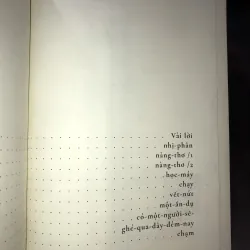 Vài lời
nhị-phân
nàng-thơ /1
nàng-thơ /2
học-máy
chạy
vết-nứt
một-ẩn-dụ
có-một-người-sẽ-
ghé-qua-đây-đêm-nay
chạm